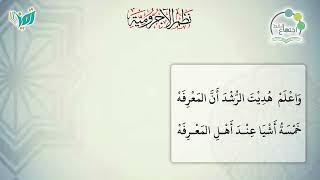 نظم الآجرومية
وَاعْلَمْ هُدِيتَ الرُّشْدَ أَنَّ المَعْرِفَهْ
خَمْسَةُ أَشْيَا عِنْدَ أَهْلِ المَعْرِفَهْ